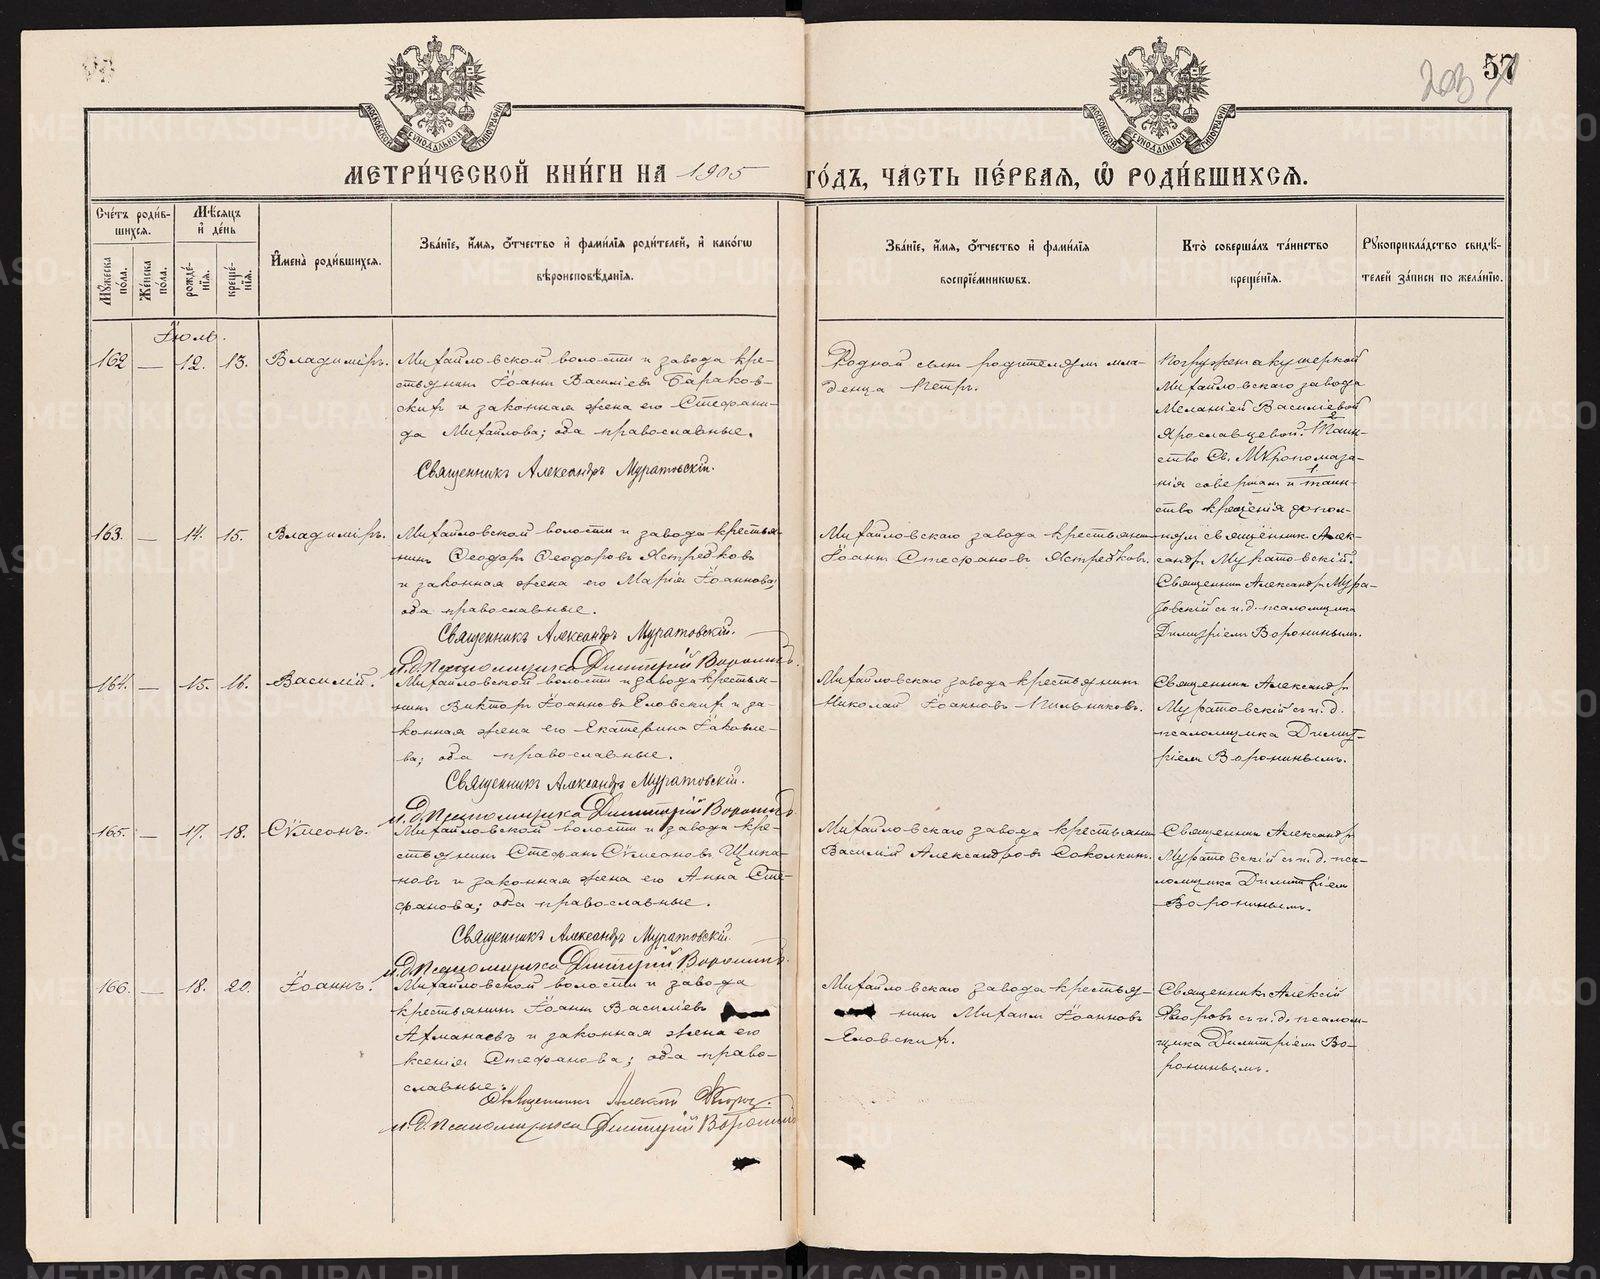 57
203
МОСКОВСКОЙ СѴНОДАЛЬНОЙ ТИПОГРАФІИ
МОСКОВСКОЙ СѴНОДАЛЬНОЙ ТИПОГРАФІИ
МЕТРИ́ЧЕСКОЙ КНИ́ГИ НА 1905 ГО́ДЪ, ЧА́СТЬ ПЕ́РВАѦ, Ѽ РОДИ́ВШИХСѦ.
Сче́тъ роди́в-
шихсѧ.
Мꙋ́жеска по́ла.
Же́нска по́ла.
Мѣ́сѧцъ и҆ де́нь
рожде́-
нїѧ.
креще́-
нїѧ.
И҆мена̀ роди́вшихсѧ.
Зва́нїе, и҆́мѧ, ѻ҆́тчество и҆ фами́лїѧ роди́телей, и҆ како́гѡ
вѣроисповѣ́данїѧ.
Зва́нїе, и҆́мѧ, ѻ҆́тчество и҆ фами́лїѧ
воспрїе́мникѡвъ.
Кто̀ соверша́лъ та́инство
креще́нїѧ.
Рꙋкоприкла́дство свидѣ́-
телей за́писи по жела́нїю.
Іюль.
162 — 12. 13. Владиміръ.
Михайловской волости и завода кре-
стьянинъ Іоаннъ Василіевъ Бараков-
скихъ и законная жена его Стефани-
да Михайлова; оба православные.
Священникъ Александръ Муратовскій.
Родной сынъ родителямъ мла-
денца Петръ.
Погруженъ акушеркой
Михайловскаго завода
Меланіей Василіевой
Ярославцевой. Таин-
ство Св. Мѵропомаза-
нія совершалъ и таин-
ство крещенія допол-
нялъ священникъ Алек-
сандръ Муратовскій.
163. — 14. 15. Владиміръ.
Михайловской волости и завода крестья-
нинъ Ѳеодоръ Ѳеодоровъ Ястребковъ
и законная жена его Марія Іоаннова;
оба православные.
Священникъ Александръ Муратовскій.
и.д. псаломщика Димитрій Воронинъ.
Михайловскаго завода крестьянинъ
Іоаннъ Стефановъ Ястребковъ.
Священникъ Александръ Мура-
товскій съ и.д. псаломщика
Димитріемъ Воронинымъ.
164. — 15. 16. Василій.
Михайловской волости и завода крестья-
нинъ Викторъ Іоанновъ Еловскихъ и за-
конная жена его Екатерина Іаковле-
ва; оба православные.
Священникъ Александръ Муратовскій.
и.д. псаломщика Димитрій Воронинъ
Михайловскаго завода крестьянинъ
Николай Іоанновъ Пильниковъ.
Священникъ Александръ
Муратовскій съ и.д.
псаломщика Димит-
ріемъ Воронинымъ.
165. — 17. 18. Сѵмеонъ.
Михайловской волости и завода кре-
стьянинъ Стефанъ Сѵмеоновъ Щипа-
новъ и законная жена его Анна Сте-
фанова; оба православные.
Священникъ Александръ Муратовскій.
и.д. псаломщика Димитрій Воронинъ.
Михайловскаго завода крестьянинъ
Василій Александровъ Соколкинъ.
Священникъ Александръ
Муратовскій съ и.д. пса-
ломщика Димитріемъ
Воронинымъ.
166. — 18. 20. Іоаннъ.
Михайловской волости и завода
крестьянинъ Іоаннъ Василіевъ
Атманаевъ и законная жена его
Ксенія Стефанова; оба право-
славные.
Священникъ Алексій
и.д. псаломщика Димитрій Воронинъ
Михайловскаго завода крестья-
нинъ Михаилъ Іоанновъ
Еловскихъ.
Священникъ Алексій
съ и.д. псалом-
щика Димитріемъ Во-
ронинымъ.
METRIKI.GASO-URAL.RU